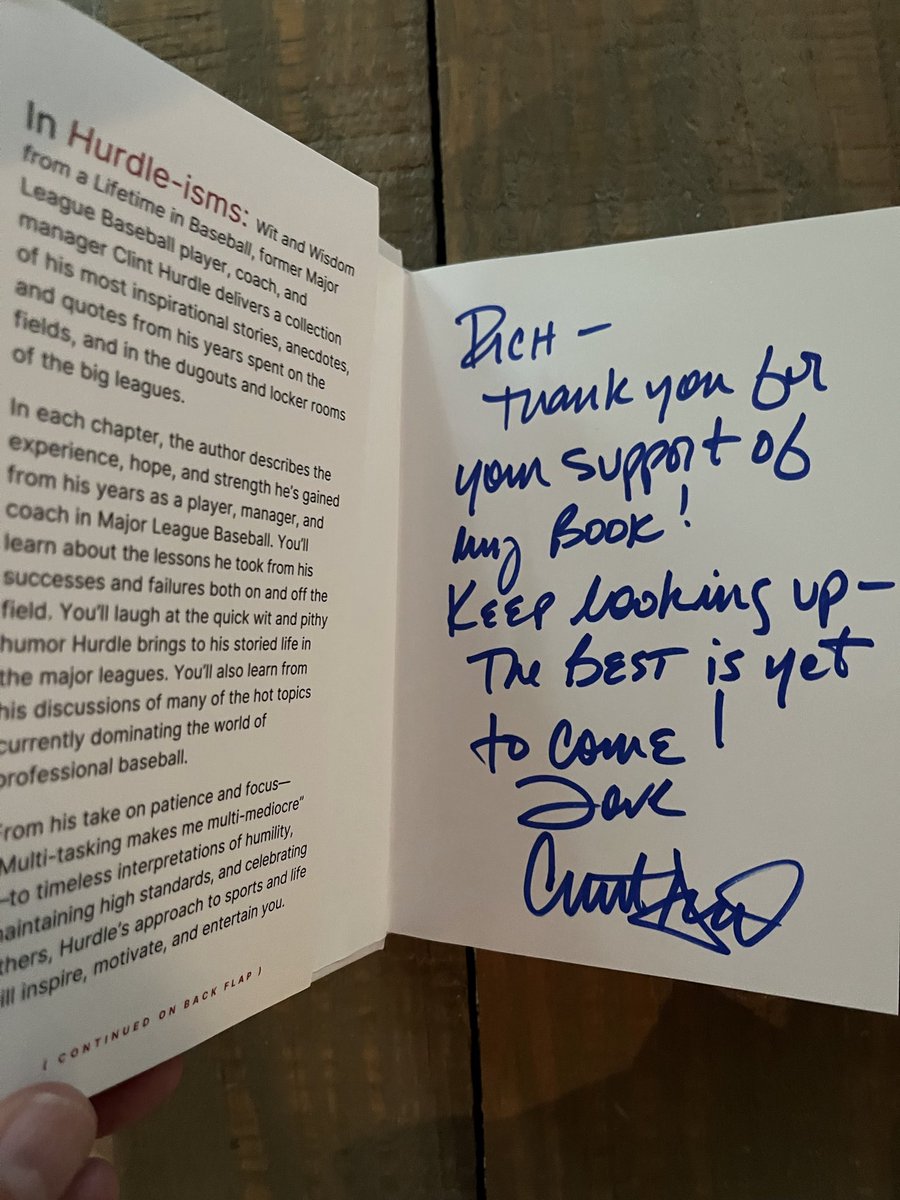 In Hurdle-isms: Wit and Wisdom
from a Lifetime in Baseball, former Major
League Baseball player, coach, and
manager Clint Hurdle delivers a collection
of his most inspirational stories, anecdotes,
and quotes from his years spent on the
fields, and in the dugouts and locker rooms
of the big leagues.
In each chapter, the author describes the
experience, hope, and strength he's gained
from his years as a player, manager, and
coach in Major League Baseball. You'll
learn about the lessons he took from his
successes and failures both on and off the
field. You'll laugh at the quick wit and pithy
humor Hurdle brings to his storied life in
the major leagues. You'll also learn from
his discussions of many of the hot topics
currently dominating the world of
professional baseball.
From his take on patience and focus—
Multi-tasking makes me multi-mediocre"
—to timeless interpretations of humility,
maintaining high standards, and celebrating
others, Hurdle's approach to sports and life
will inspire, motivate, and entertain you.
( CONTINUED ON BACK FLAP )
RICH –
Thank you for
your support of
my BOOK!
KEEP looking up –
The BEST is yet
to come!
Love
Clint Hurdle